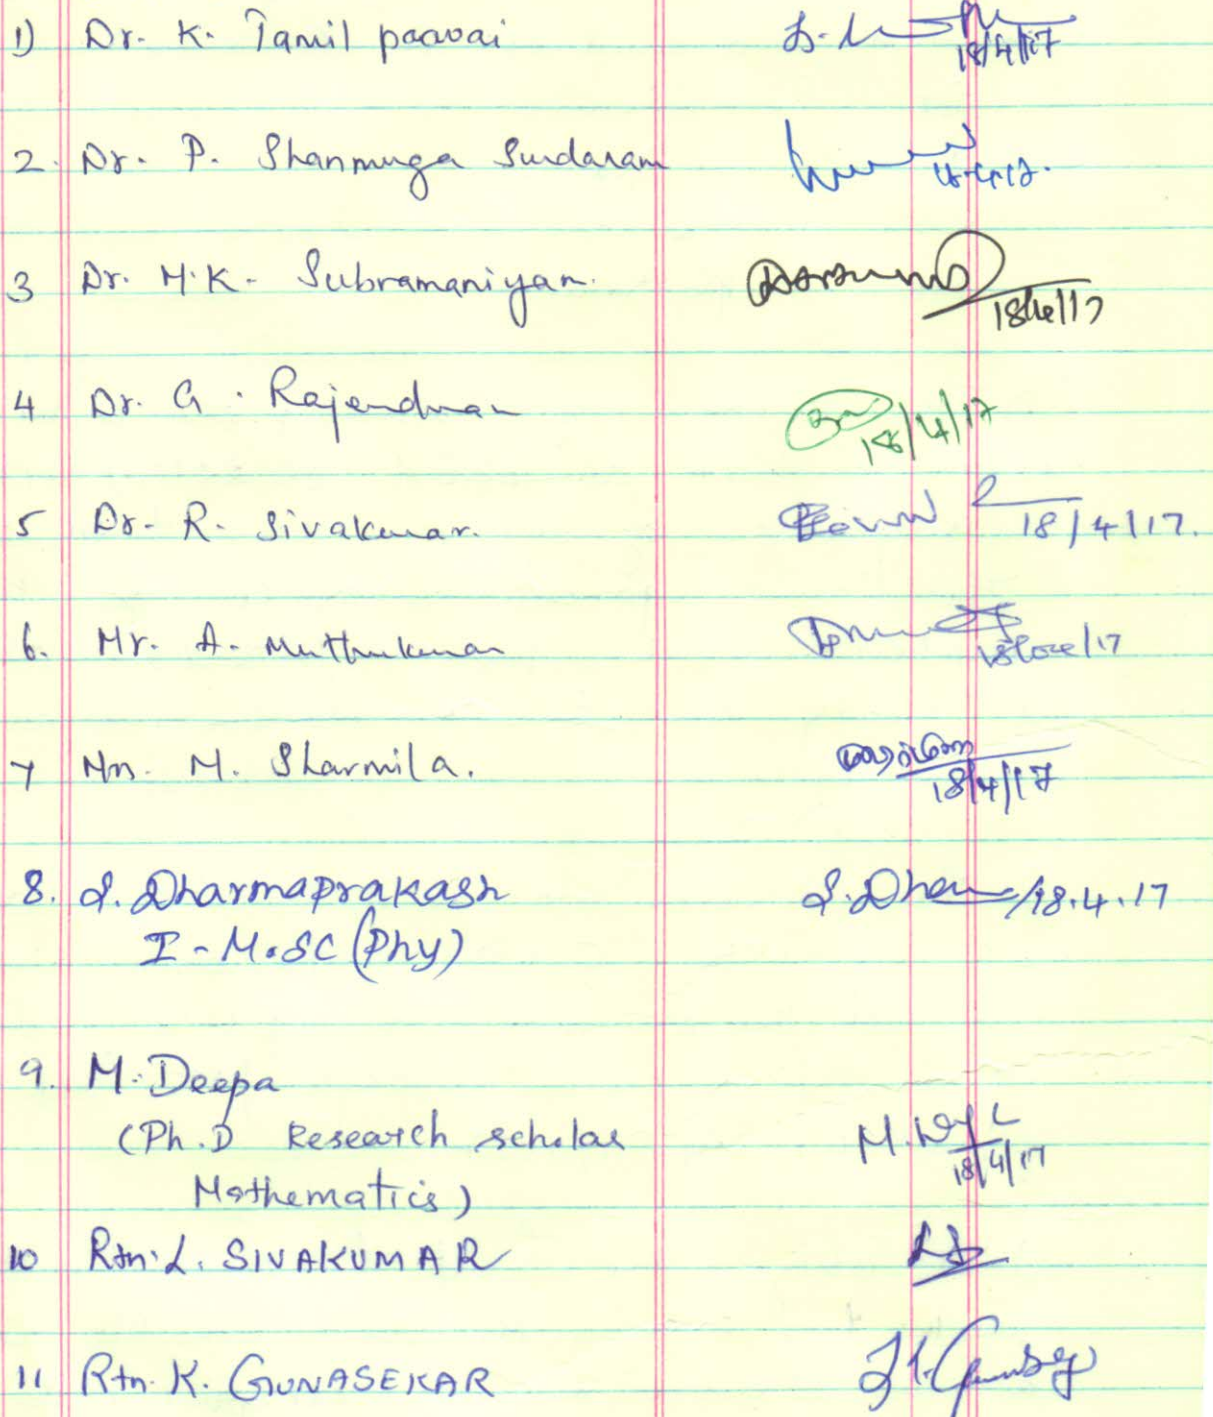 1) Dr. K. Tamil paavai 18/4/17
2. Dr. P. Shanmuga Sundaram
3 Dr. M.K. Subramaniyan. 18/4/17
4 Dr. G. Rajendran 18/4/17
5 Dr. R. Sivakumar. 18/4/17.
6. Mr. A. Muthukumar
7 M. Sharmila. 18/4/17
8. S. Dharmaprakash 18.4.17
I - M.SC (Phy)
9. M. Deepa
(Ph.D Research scholar
18/4/17
Mathematics)
10 Rtn. L. SIVAKUMAR
11 Rtn. K. GUNASEKAR